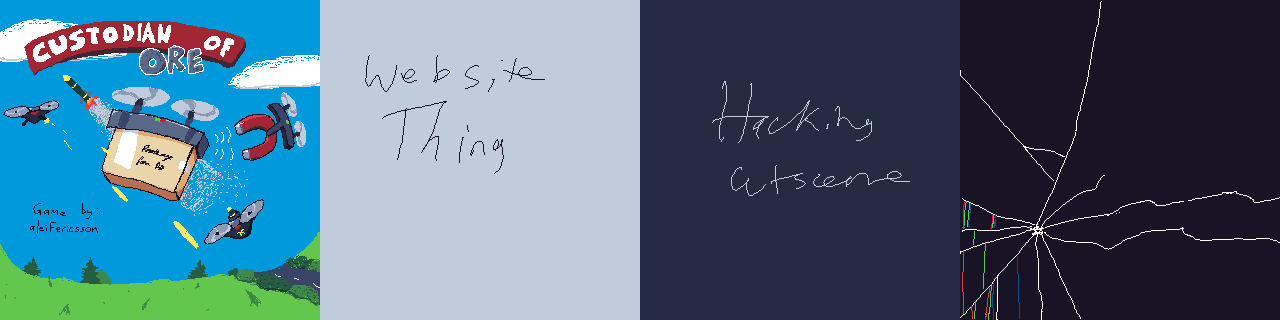 CUSTODIAN OF
ORE
Package
for
Game by:
aleifericsson
Website
Thing
Hacking
cutscene